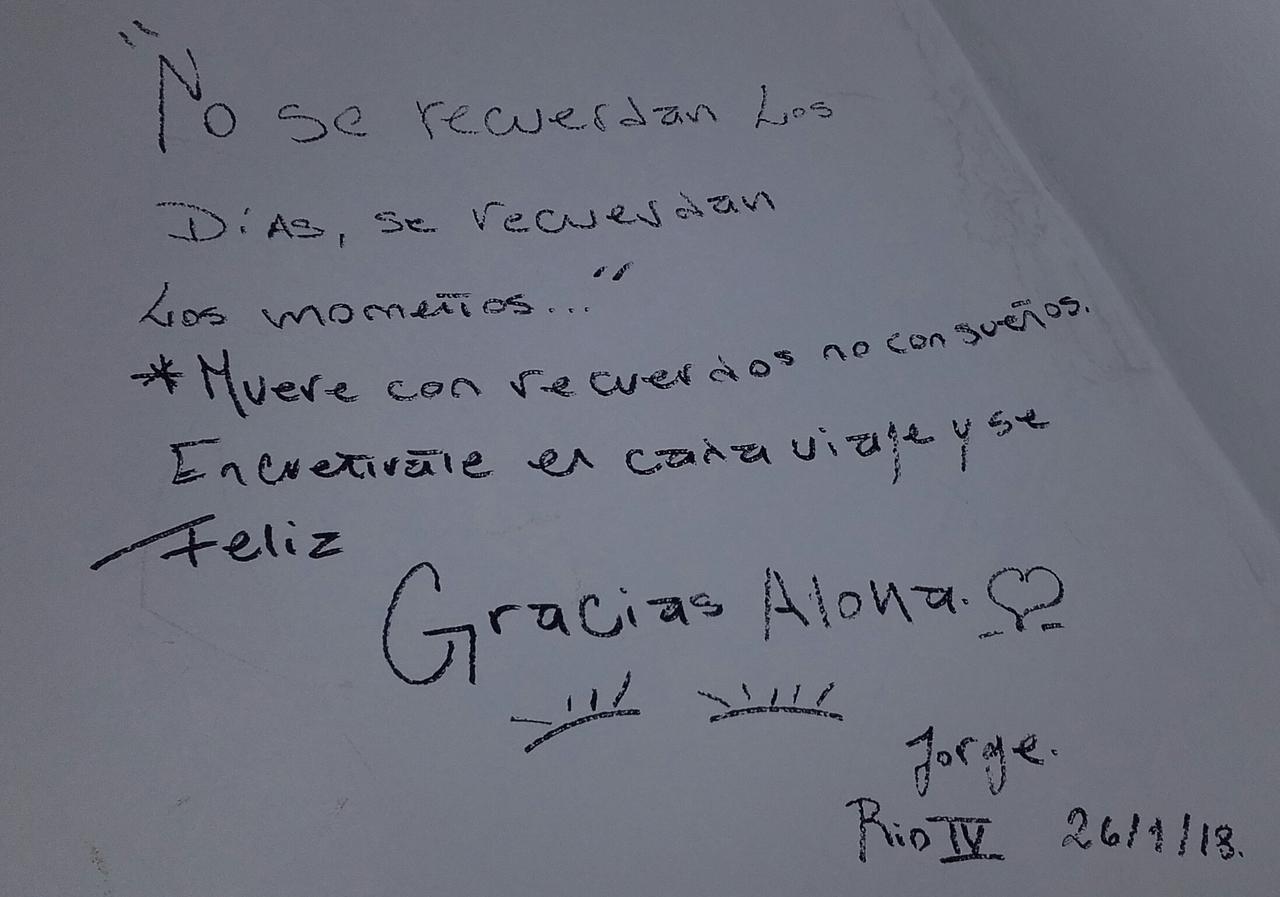 "No se recuerdan Los
Dias, se recuerdan
Los momentos..."
*Muere con recuerdos no con sueños.
Encuentrate en cada viaje y se
Feliz
Gracias Aloha.
Jorge.
Rio IV 26/1/18.